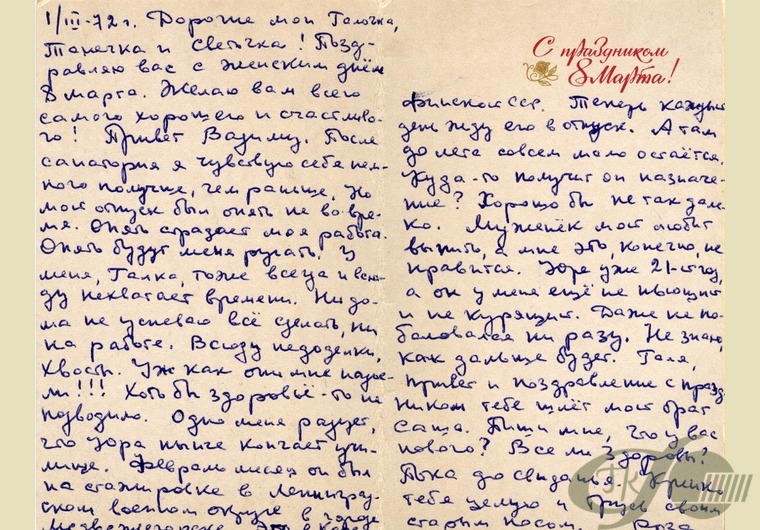 1/III-72г. Дорогие мои Галочка,
Танечка и Светочка! Позд-
равляю вас с женским днём
8 марта. Желаю вам всего
самого хорошего и счастливо-
го! Привет Вадиму. После
санатория я чувствую себя нем-
ного получше, чем раньше. Но
мой отпуск был опять не во вре-
мя. Опять страдает моя работа.
Опять будут меня ругать. У
меня, Галка, тоже всегда и всю-
ду нехватает времени. Ни до-
ма не успеваю всё сделать, ни
на работе. Всюду недоделки,
хвосты. Уж как они мне надое-
ли!!! Хоть бы здоровьё-то не
подводило. Одно меня радует,
что Юра нынче кончает учи-
лище. Февраль месяц он был
на стажировке в Ленинград-
ском военном округе в городе
Медвежьегорске. Это в
С праздником
8 Марта!
Финской ССР. Теперь каждый
день жду его в отпуск. А там
до лета совсем мало остаётся.
Куда-то получит он назначе-
ние? Хорошо бы не так дале-
ко. Муженёк мой любит
выпить, а мне это, конечно, не
нравится. Юре уже 21-ый год,
а он у меня ещё не пьющий
и не курящий. Даже не по-
баловался ни разу. Не знаю,
как дальше будет. Галя,
привет и поздравление с празд-
ником тебе шлёт мой брат
Саша. Пиши мне, что у вас
нового? Все ли здоровы?
Пока до свиданья. Крепко
тебя целую и своим
старым носом.